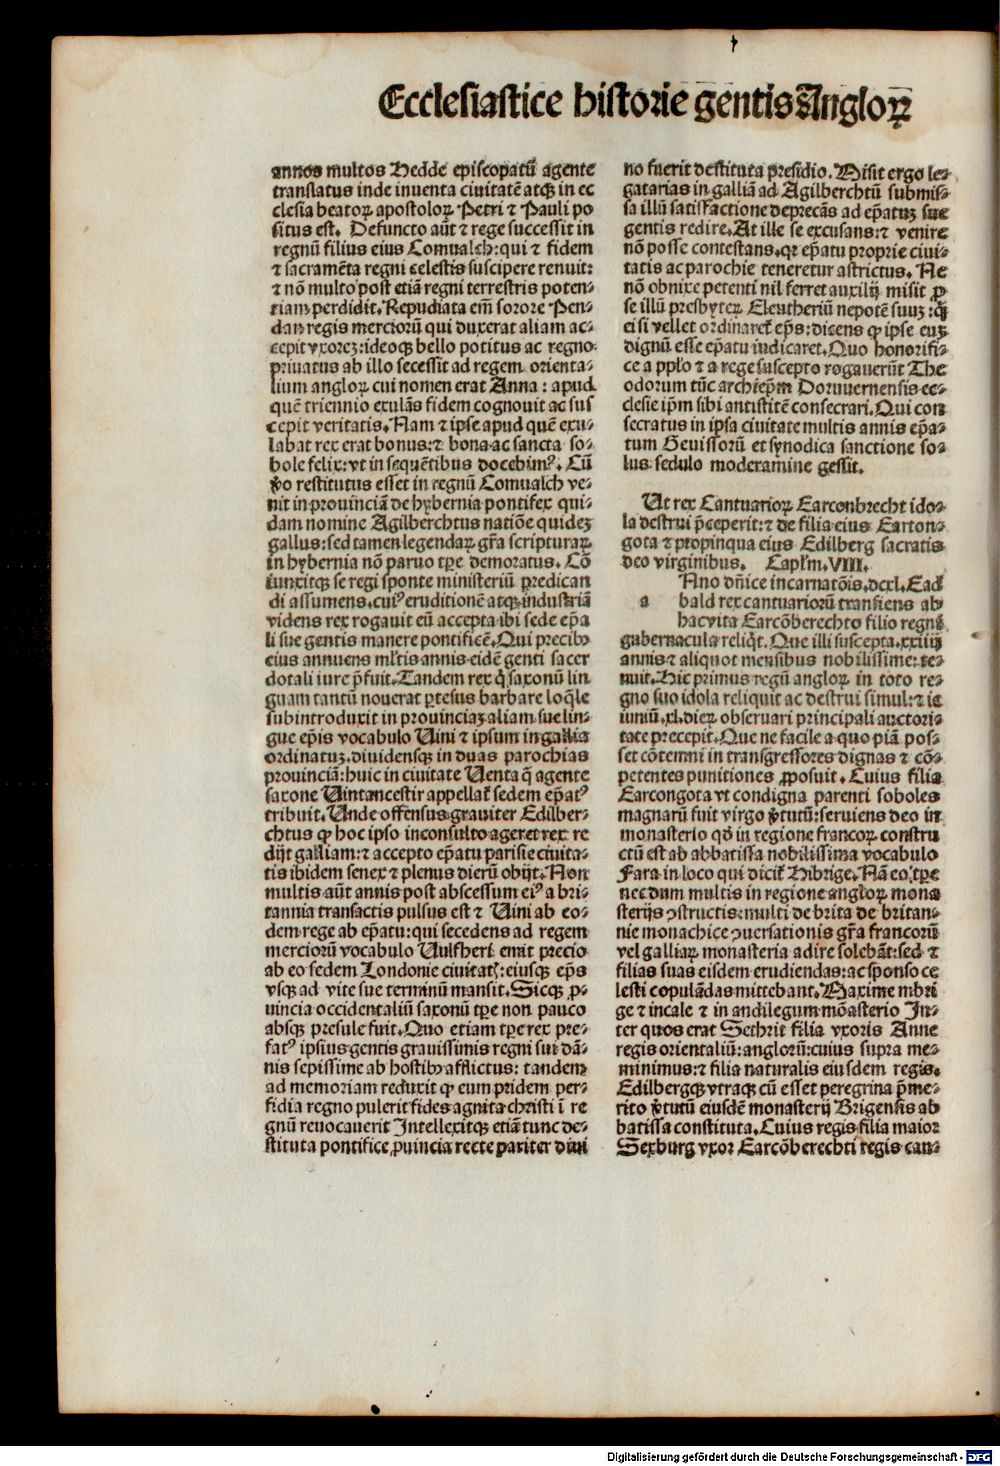 Ecclesiastice historie gentis Angloꝝ
annos multos Hedde episcopatū agente
translatus inde inuenta ciuitatē atqꝫ in ec
clesia beatoꝝ apostoloꝝ Petri ⁊ Pauli po
situs est. Defuncto aūt ⁊ rege successit in
regnū filius eius Comualch: qui ⁊ fidem
⁊ sacramēta regni celestis suscipere renuit:
⁊ nō multo post etiā regni terrestris poten⸗
tiam perdidit. Repudiata em̄ sorore Pen⸗
dan regis merciorū qui duxerat aliam ac⸗
cepit vxoreꝫ: ideoqꝫ bello potitus ac regno
priuatus ab illo secessit ad regem orienta⸗
lium angloꝝ cui nomen erat Anna: apud
quē triennio exulās fidem cognouit ac sus
cepit veritatis. Nam ⁊ ipse apud quē exu⸗
labat rex erat bonus: ⁊ bona ac sancta so⸗
bole felix: vt in sequētibus docebimꝰ. Cū
ꝟo restitutus esset in regnū Comualch ve⸗
nit in prouinciā de hybernia pontifex qui⸗
dam nomine Agilberchtus natiōe quideꝫ
gallus: sed tamen legendaꝝ gr̄a scripturaꝝ
in hybernia nō paruo tꝑe demoratus. Cō
iunxitqꝫ se regi sponte ministeriū predican
di assumens. cuiꝰ eruditionē atqꝫ industriā
videns rex rogauit eū accepta ibi sede ep̄a
li sue gentis manere pontificē. Qui precibꝫ
eius annuens ml̄tis annis eidē genti sacer
dotali iure p̄fuit. Tandem rex q̇ saxonū lin
guam tantū nouerat ꝑtesus barbare loq̄le
subintroduxit in prouinciaꝫ aliam sue lin⸗
gue ep̄is vocabulo Uini ⁊ ipsum in gallia
ordinatuꝫ. diuidensqꝫ in duas parochias
prouinciā: huic in ciuitate Uenta q̄ a gente
saxone Uintancestir appellat̄ sedem ep̄atꝰ
tribuit. Unde offensus grauiter Edilber⸗
chtus ꝙ hoc ipso inconsulto ageret rex re
dijt galliam: ⁊ accepto ep̄atu parisie ciuita⸗
tis ibidem senex ⁊ plenus dierū obijt. Non
multis aūt annis post abscessum eiꝰ a bri⸗
tannia transactis pulsus est ⁊ Uini ab eo⸗
dem rege ab ep̄atu: qui secedens ad regem
merciorū vocabulo Uulfheri emit precio
ab eo sedem Londonie ciuitatꝭ: eiusqꝫ ep̄s
vsqꝫ ad vite sue terminū mansit. Sicqꝫ ꝓ⸗
uincia occidentaliū saxonū tꝑe non pauco
absqꝫ presule fuit. Quo etiam tꝑe rex pre⸗
fatꝰ ipsius gentis grauissimis regni sui dā⸗
nis sepissime ab hostibꝫ afflictus: tandem
ad memoriam reduxit ꝙ eum pridem per⸗
fidia regno pulerit fides agnita christi ī re
gnū reuocauerit Intellexitqꝫ etiā tunc de⸗
stituta pontifice ꝓuincia recte pariter diui
no fuerit destituta presidio. Misit ergo le⸗
gatarias in galliā ad Agilberchtū submis⸗
sa illū satisfactione deprecās ad ep̄atuꝫ sue
gentis redire. At ille se excusans: ⁊ venire
nō posse contestans. qꝛ ep̄atu proprie ciui⸗
tatis ac parochie teneretur astrictus. Ne
nō obnixe petenti nil ferret auxilij misit ꝓ
se illū presbyteꝝ Eleutheriū nepotē suuꝫ: q̄
ei si vellet ordinaret̄ ep̄s: dicens ꝙ ipse euꝫ
dignū esse ep̄atu iudicaret. Quo honorifi⸗
ce a pplo ⁊ a rege suscepto rogauerūt The
odorum tūc archiep̄m Doruuernensis ec⸗
clesie ip̄m sibi antistitē consecrari. Qui con
secratus in ipsa ciuitate multis annis ep̄a⸗
tum Geuissorū et synodica sanctione so⸗
lus sedulo moderamine gessit.
Ut rex Cantuarioꝝ Earconbrecht ido⸗
la destrui p̄ceperit: ⁊ de filia eius Earton⸗
gota ⁊ propinqua eius Edilberg sacratis
deo virginibus. Capl̄m. VIII.
a Nno dn̄ice incarnatōis. dcxl. Ead
bald rex cantuariorū transiens ab
hac vita Earcōberechto filio regni
gubernacula reliq̇t. Que illi suscepta. xxiiij
annis ⁊ aliquot mensibus nobilissime: te⸗
nuit. Hic primus regū angloꝝ in toto re⸗
gno suo idola reliquit ac destrui simul: ⁊ ie
iuniū. xl. dieꝝ obseruari principali auctori⸗
tate precepit. Que ne facile a quo piā pos⸗
set cōtemni in transgressores dignas ⁊ cō⸗
petentes punitiones ꝓposuit. Cuius filia
Earcongota vt condigna parenti soboles
magnarū fuit virgo ꝟtutū: seruiens deo in
monasterio qd̄ in regione francoꝝ constru
ctū est ab abbatissa nobilissima vocabulo
Fara in loco qui dicit̄ Hibrige. Nā eo tꝑe
necdum multis in regione angloꝝ mona
sterijs ꝯstructis: multi de brita de britan⸗
nie monachice ꝯuersationis gr̄a francorū
vel galliaꝝ monasteria adire solebāt: sed ⁊
filias suas eisdem erudiendas: ac sponso ce
lesti copulādas mittebant. Maxime in bri
ge ⁊ in cale ⁊ in andilegum mōasterio In⸗
ter quos erat Sethrit filia vxoris Anne
regis orientaliū: anglorū: cuius supra me⸗
minimus: ⁊ filia naturalis eiusdem regis.
Edilbergqꝫ vtraqꝫ cū esset peregrina p̄me⸗
rito ꝟtutū eiusdē monasterij Brigensis ab
batissa constituta. Cuius regis filia maior
Sexburg vxor Earcōberechti regis can⸗
Digitalisierung gefördert durch die Deutsche Forschungsgemeinschaft - DFG